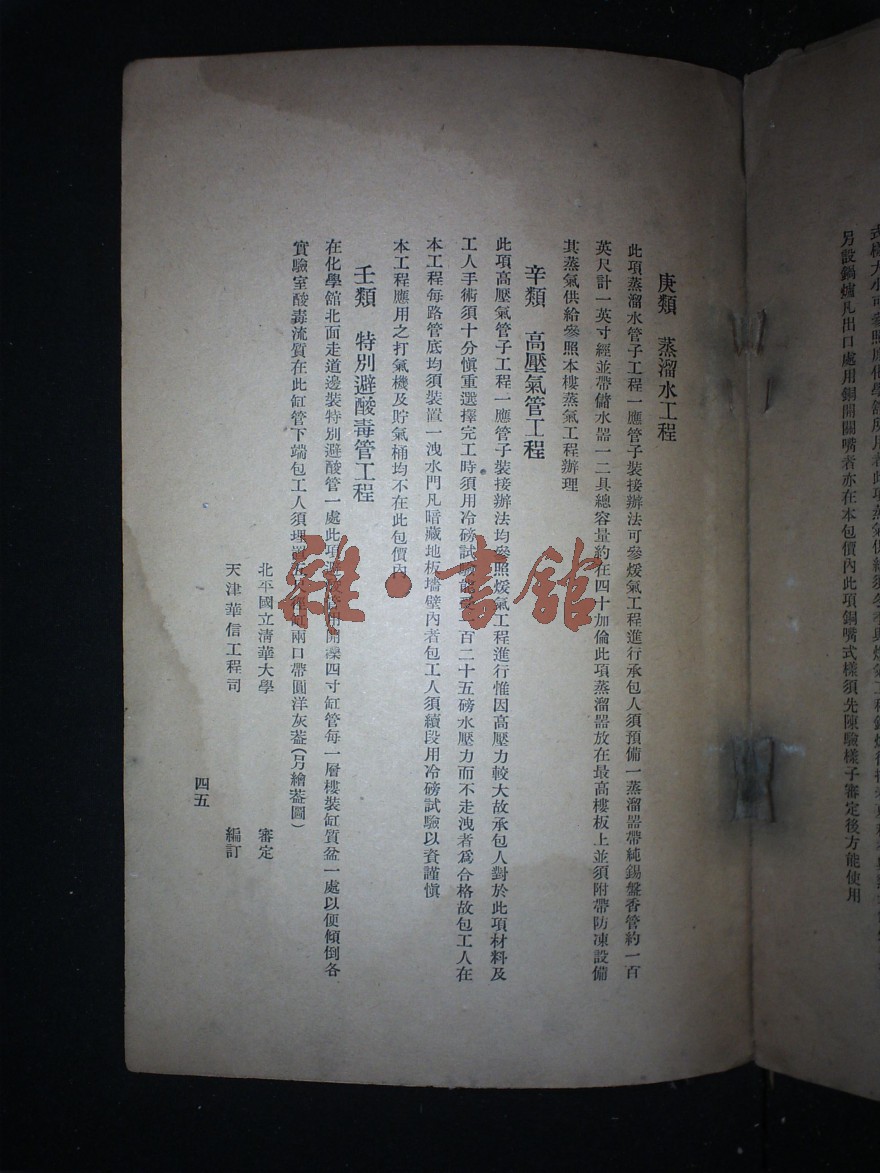 另設鍋爐凡出口處用銅開關嘴者亦在本包價內此項銅嘴式樣須先陳驗樣子審定後方能使用
庚類　蒸溜水工程
此項蒸溜水管子工程一應管子裝接辦法可參煖氣工程進行承包人須預備一蒸溜器帶純錫盤香管約一百
英尺計一英寸經並帶儲水器一二具總容量約在四十加倫此項蒸溜器放在最高樓板上並須附帶防凍設備
其蒸氣供給參照本樓蒸氣工程辦理
辛類　高壓氣管工程
此項高壓氣管子工程一應管子裝接辦法均參照煖氣工程進行惟因高壓力較大故承包人對於此項材料及
工人手術須十分愼重選擇完工時須用冷磅試百二十五磅水壓力而不走洩者爲合格故包工人在
本工程每路管底均須裝置一洩水門凡暗藏地板墻壁內者包工人須續段用冷磅試驗以資謹愼
本工程應用之打氣機及貯氣桶均不在此包價內
壬類　特別避酸毒管工程
在化學館北面走道邊裝特別避酸管一處此項四寸缸管每一層樓裝缸質盆一處以便傾倒各
實驗室酸毒流質在此缸管下端包工人須埋置兩口帶圓洋灰蓋(另繪蓋圖)
北平國立淸華大學　審定
天津華信工程司　編訂
四五
雜·書館